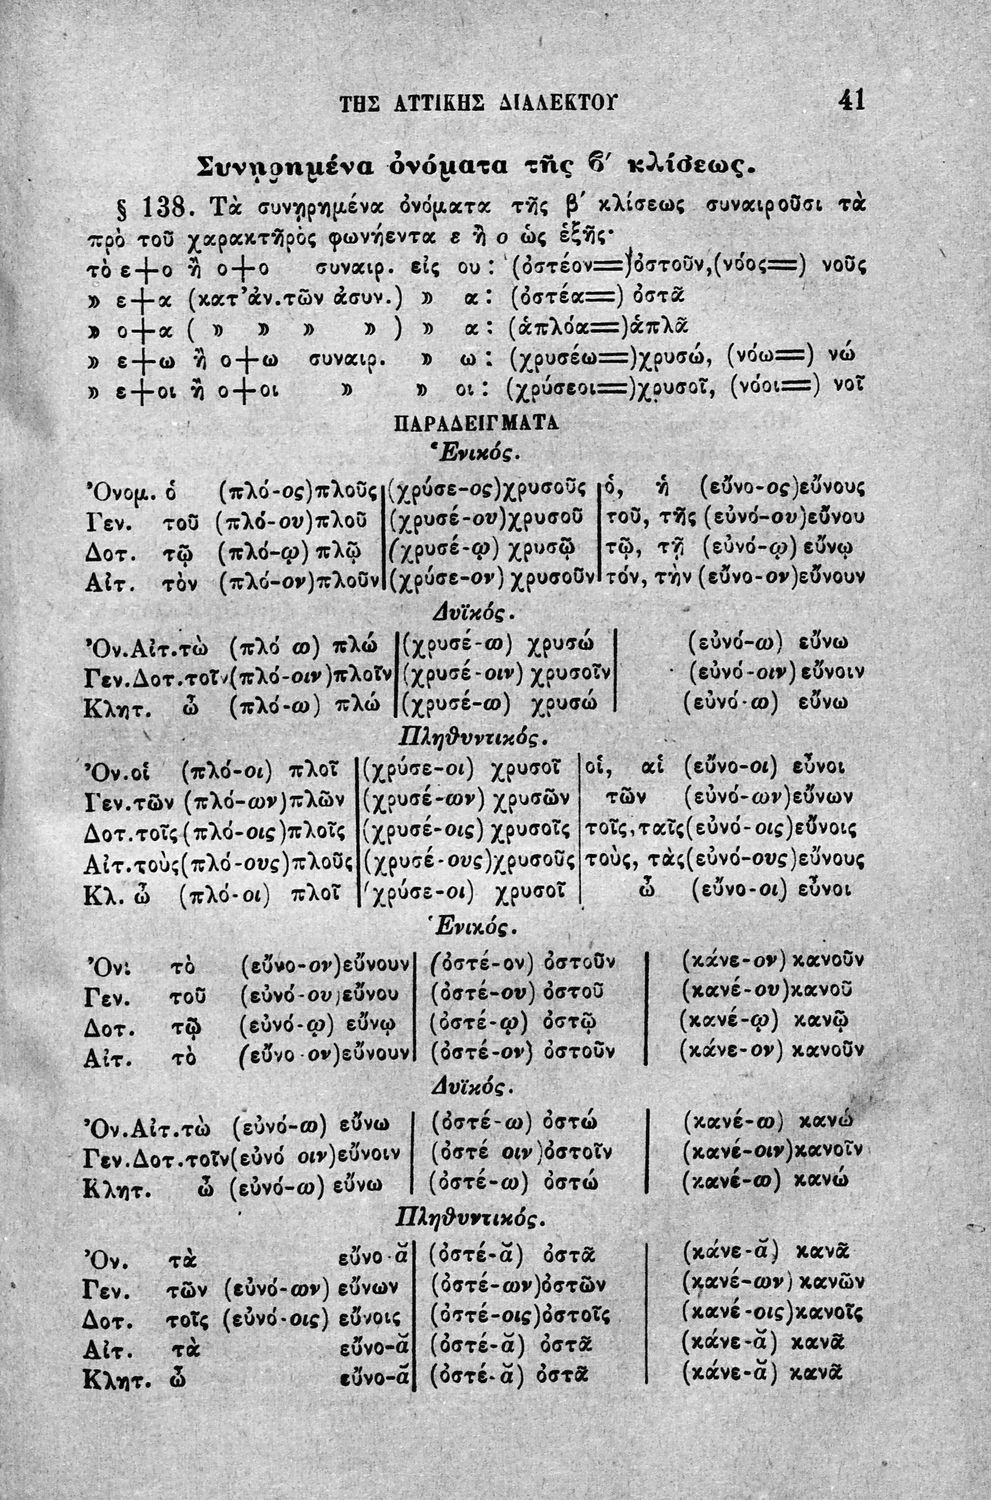 ΤΗΣ ΑΤΤΙΚΗΣ ΔΙΑΛΕΚΤΟΥ 41
Συνῃρημένα ὀνόματα τῆς ϐ′ κλίσεως.
§ 138. Τὰ συνῃρημένα ὀνόματα τῆς β′ κλίσεως συναιροῦσι τὰ
πρὸ τοῦ χαρακτῆρὸς φωνήεντα ε ἢ ο ὡς ἑξῆς·
τὸ ε+ο ἢ ο+ο συναιρ. εἰς ου : (ὀστέον=)ὀστοῦν,(νόος=) νοῦς
» ε+α (κατ'ἀν.τῶν ἀσυν.) » α : (ὀστέα=) ὀστᾶ
» ο+α ( » » » » ) » α : (ἁπλόα=)ἁπλᾶ
» ε+ω ἢ ο+ω συναιρ. » ω : (χρυσέω=)χρυσώ, (νόω=) νώ
» ε+οι ἢ ο+οι » » οι : (χρύσεοι=)χρυσοῖ, (νόοι=) νοῖ
ΠΑΡΑΔΕΙΓΜΑΤΑ
Ἑνικός.
Ὀνομ. ὁ (πλό-ος)πλοῦς (χρύσε-ος)χρυσοῦς ὁ, ἡ (εὔνο-ος)εὔνους
Γεν. τοῦ (πλό-ου)πλοῦ (χρυσέ-ου)χρυσοῦ τοῦ, τῆς (εὐνό-ου)εὔνου
Δοτ. τῷ (πλό-ῳ) πλῷ (χρυσέ-ῳ) χρυσῷ τῷ, τῇ (εὐνό-ῳ) εὔνῳ
Αἰτ. τὸν (πλό-ον)πλοῦν (χρύσε-ον) χρυσοῦν τόν, τὴν (εὔνο-ον)εὔνουν
Δυϊκός.
Ὀν.Αἰτ.τὼ (πλό ω) πλώ (χρυσέ-ω) χρυσώ (εὐνό-ω) εὔνω
Γεν.Δοτ.τοῖν(πλό-οιν)πλοῖν (χρυσέ-οιν) χρυσοῖν (εὐνό-οιν) εὔνοιν
Κλητ. ὦ (πλό-ω) πλώ (χρυσέ-ω) χρυσώ (εὐνό-ω) εὔνω
Πληθυντικός.
Ὀν.οἱ (πλό-οι) πλοῖ (χρύσε-οι) χρυσοῖ οἱ, αἱ (εὔνο-οι) εὖνοι
Γεν.τῶν (πλό-ων)πλῶν (χρυσέ-ων) χρυσῶν τῶν (εὐνό-ων)εὔνων
Δοτ.τοῖς(πλό-οις)πλοῖς (χρυσέ-οις) χρυσοῖς τοῖς,ταῖς(εὐνό-οις)εὔνοις
Αἰτ.τοὺς(πλό-ους)πλοῦς (χρυσέ-ους)χρυσοῦς τοὺς, τὰς(εὐνό-ους)εὔνους
Κλ. ὦ (πλό-οι) πλοῖ (χρύσε-οι) χρυσοῖ ὦ (εὔνο-οι) εὖνοι
Ἑνικός.
Ὀν: τὸ (εὔνο-ον)εὔνουν (ὀστέ-ον) ὀστοῦν (κάνε-ον) κανοῦν
Γεν. τοῦ (εὐνό-ου)εὔνου (ὀστέ-ου) ὀστοῦ (κανέ-ου)κανοῦ
Δοτ. τῷ (εὐνό-ῳ) εὔνῳ (ὀστέ-ῳ) ὀστῷ (κανέ-ῳ) κανῷ
Αἰτ. τὸ (εὔνο-ον)εὔνουν (ὀστέ-ον) ὀστοῦν (κάνε-ον) κανοῦν
Δυϊκός.
Ὀν.Αἰτ.τὼ (εὐνό-ω) εὔνω (ὀστέ-ω) ὀστώ (κανέ-ω) κανώ
Γεν.Δοτ.τοῖν(εὐνό οιν)εὔνοιν (ὀστέ οιν)ὀστοῖν (κανέ-οιν)κανοῖν
Κλητ. ὦ (εὐνό-ω) εὔνω (ὀστέ-ω) ὀστώ (κανέ-ω) κανώ
Πληθυντικός.
Ὀν. τὰ εὔνο-ᾰ (ὀστέ-ᾰ) ὀστᾶ (κάνε-ᾰ) κανᾶ
Γεν. τῶν (εὐνό-ων) εὔνων (ὀστέ-ων)ὀστῶν (κανέ-ων) κανῶν
Δοτ. τοῖς (εὐνό-οις) εὔνοις (ὀστέ-οις)ὀστοῖς (κανέ-οις)κανοῖς
Αἰτ. τὰ εὔνο-ᾰ (ὀστέ-ᾰ) ὀστᾶ (κάνε-ᾰ) κανᾶ
Κλητ. ὦ εὔνο-ᾰ (ὀστέ-ᾰ) ὀστᾶ (κάνε-ᾰ) κανᾶ